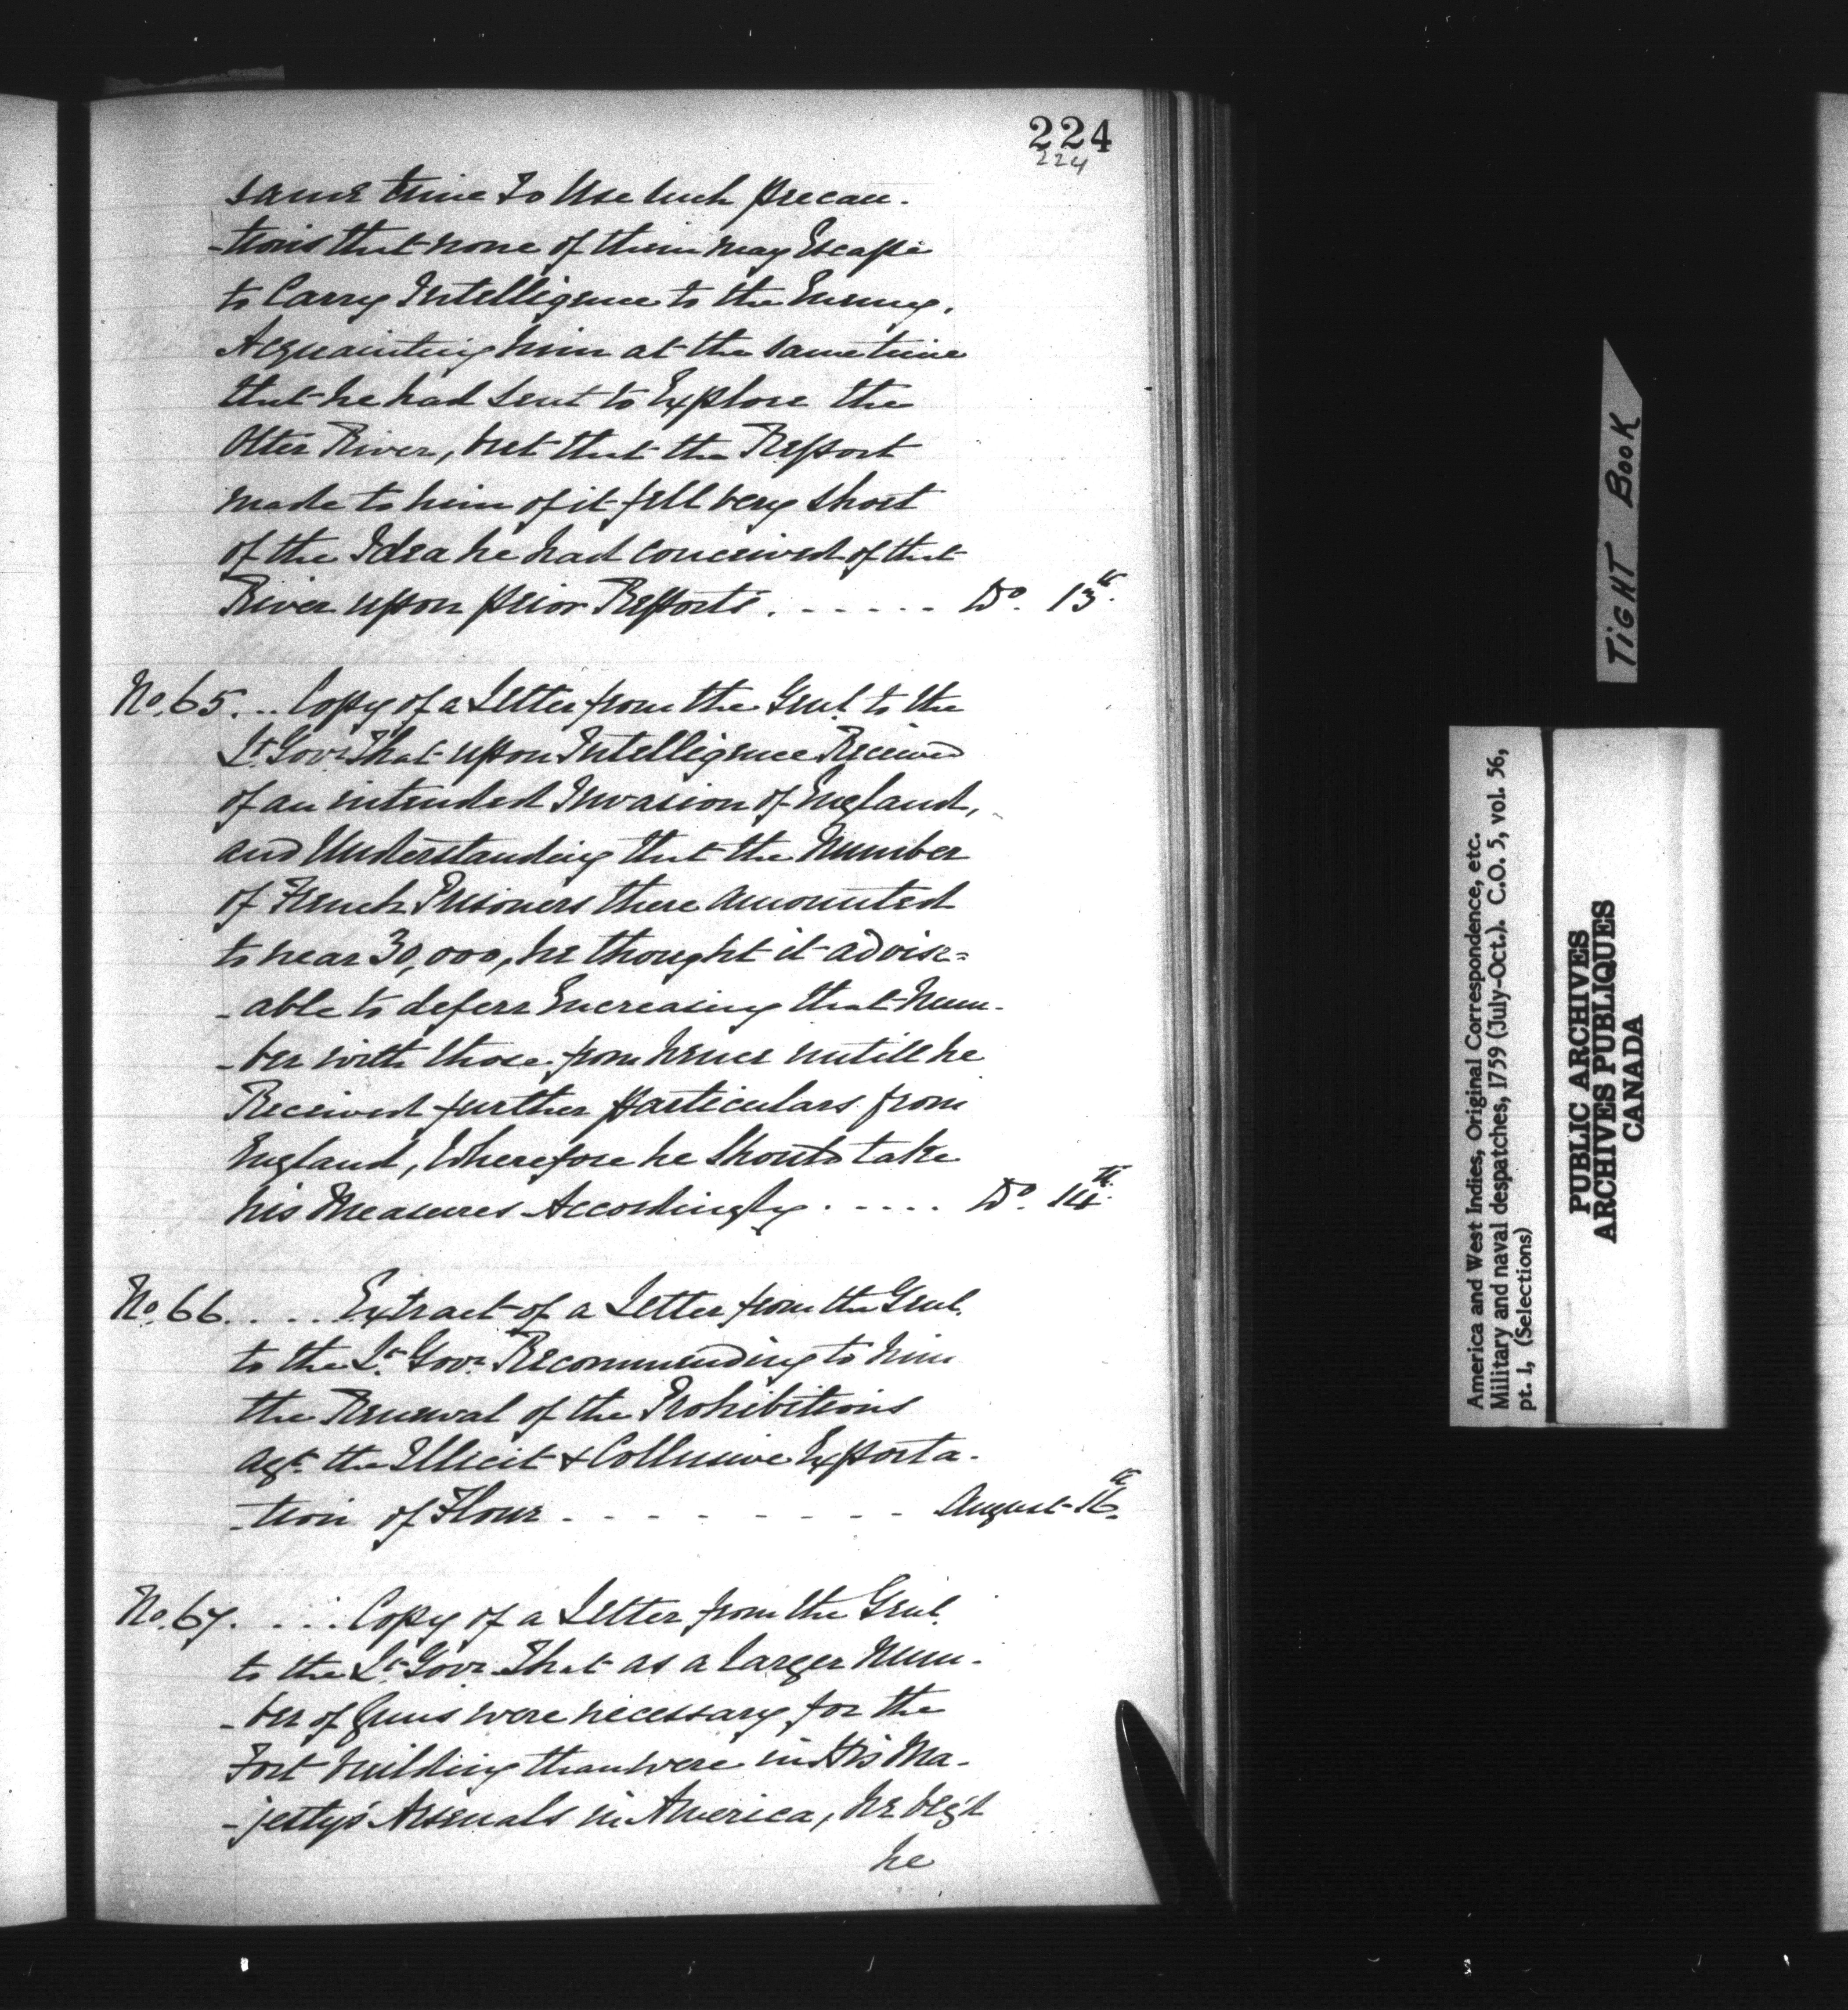 224
224
same time to Use such precau-
-tions that none of them may Escape
to Carry Intelligence to the Enemy,
Acquainting him at the same time
that he had sent to Explore the
Otter River, but that the Report
made to him of it fell very short
of the Idea he had conceived of that
River upon prior Reports. - - - - - Do. 13th.
No. 65. .. Copy of a Letter from the Genl. to the
Lt. Govr. That upon Intelligence Received
of an intended Invasion of England,
and Understanding that the Number
of French Prisoners there amounted
to near 30,000, he thought it advise=
-able to deferr Encreasing that Num-
-ber with those from hence untill he
Received further particulars from
England, Wherefore he should take
his Measures Accordingly . - - - - Do. 14th.
No. 66. . . . . Extract of a Letter from the Genl.
to the Lt. Govr. Recommending to him
the Renewal of the Prohibitions
agt. the Illicit & Collusive Exporta-
-tion of Flour - - - - - - - - - August 16th.
No. 67. . . . . Copy of a Letter from the Genl.
to the Lt. Govr. That as a larger Num-
-ber of Guns were necessary for the
Fort building than were in His Ma-
-jesty's Arsenals in America, he beg'd
he
TIGHT BOOK
America and West Indies, Original Correspondence, etc.
Military and naval despatches, 1759 (July-Oct.). C.O. 5, vol. 56,
pt. 1, (Selections)
PUBLIC ARCHIVES
ARCHIVES PUBLIQUES
CANADA